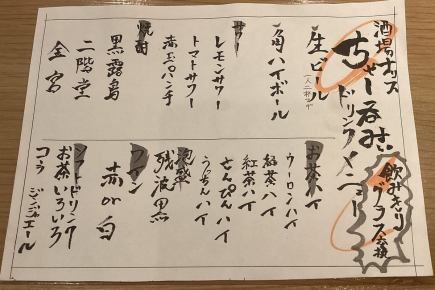 酒場ボックス
ちょい呑み
ドリンクメニュー
飲みきり
グラス交換
生ビール
角ハイボール
サワー
レモンサワー
トマトサワー
赤玉パンチ
焼酎
黒霧島
二階堂
金宮
お茶ハイ
ウーロンハイ
緑茶ハイ
紅茶ハイ
さんぴんハイ
うっちんハイ
泡盛
残波 黒
ワイン
赤or白
ソフトドリンク
お茶いろいろ
コーラ ジンジャエール